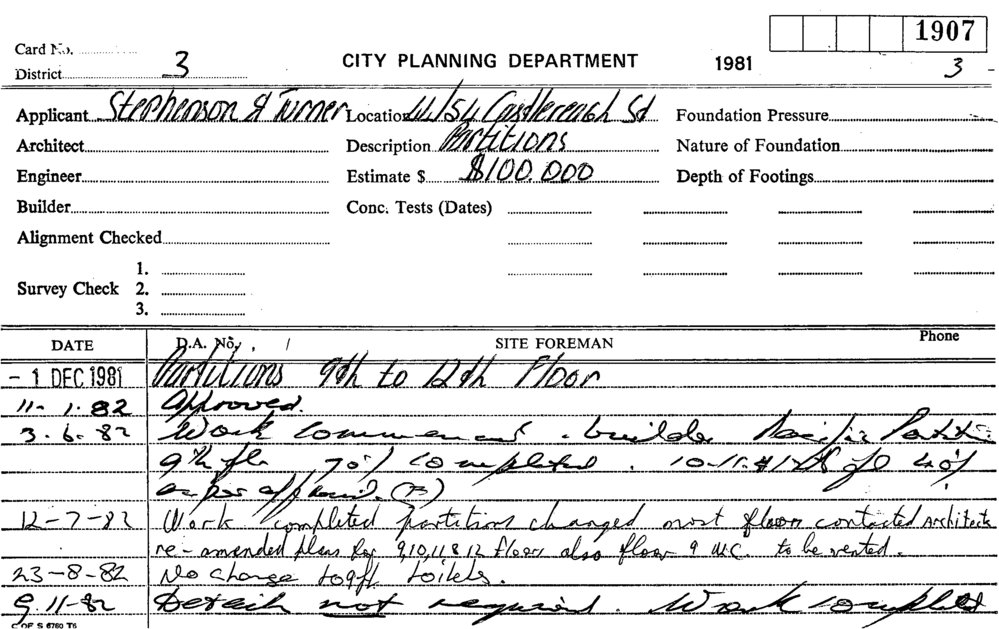 1907
Card No.
CITY PLANNING DEPARTMENT 1981 3
District 3
Applicant Stephenson & Turner Location 41/54 Castlereagh St Foundation Pressure
Architect Description Partitions Nature of Foundation
Engineer Estimate $ $100.000 Depth of Footings
Builder Conc. Tests (Dates)
Alignment Checked
1.
Survey Check 2.
3.
DATE D.A. No. SITE FOREMAN Phone
- 1 DEC 1981 Partitions 9th to 12th Floor
11-1.82 Approved.
3.6.82 Work commenced. builder Pacific Partit
9th flr 70% completed. 10-11-&12th 40%
as per approval. (B)
12-7-82 Work completed partitions changed most floors contacted Architects
re-amended plans for 9,10,11 & 12 Floors also floor 9 W.C. to be vented.
23-8-82 No change to 9 fl. toilets.
9.11-82 Details not required. Work completed
C OF S 6760 T6